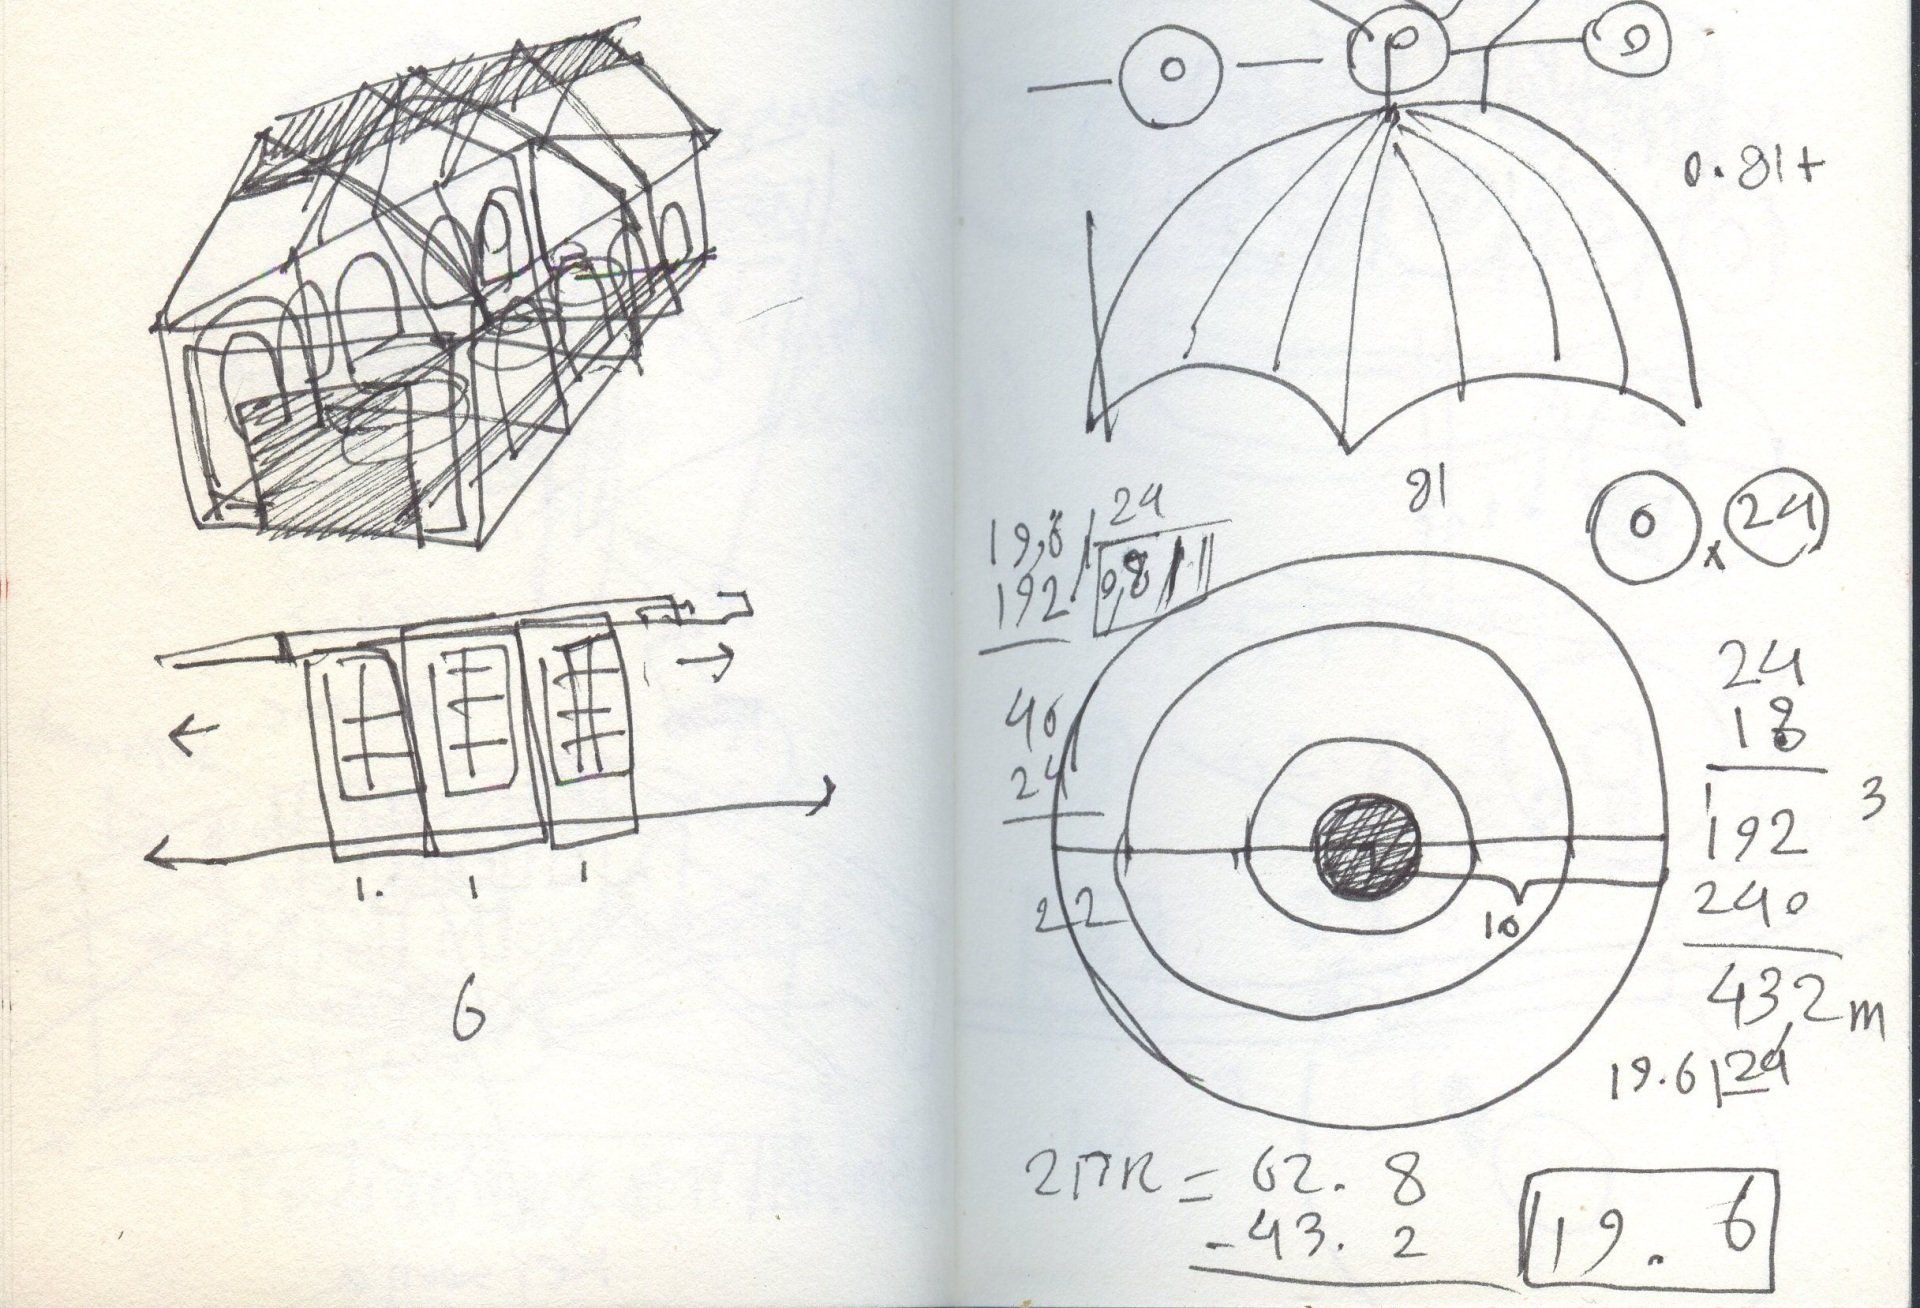 1. 1 1
6
0.81+
81
24
19,6 24
192 0,81
40
24
22
24
18
192
240
43,2 m
3
19.6 24
10
2ΠR = 62.8
-43.2
19.6